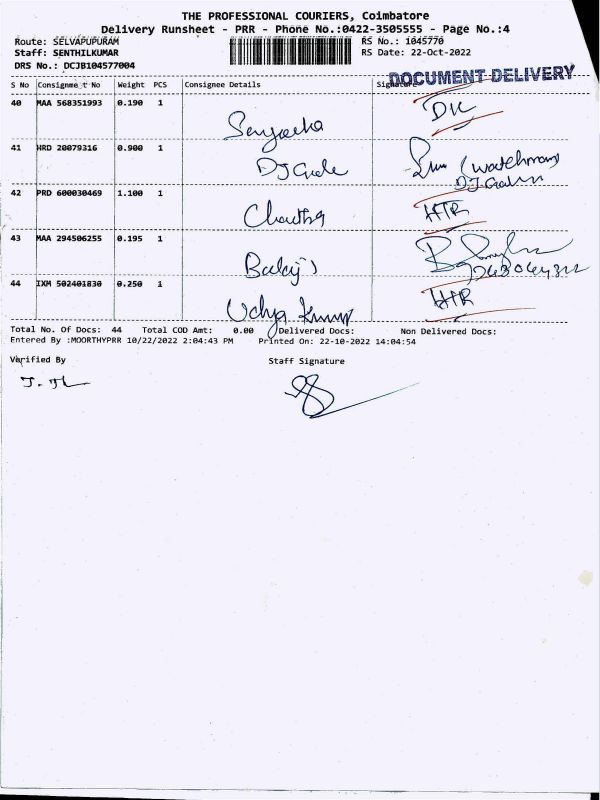 THE PROFESSIONAL COURIERS, Coimbatore
Delivery Runsheet - PRR - Phone No.:0422-3505555 - Page No.:4
Route: SELVAPUPURAM RS No.: 1045770
Staff: SENTHILKUMAR RS Date: 22-Oct-2022
DRS No.: DCJB104577004
DOCUMENT DELIVERY
S No Consignment No Weight PCS Consignee Details Signature
40 MAA 568351993 0.190 1
41 HRD 20079316 0.900 1 (watchman)
42 PRD 600030469 1.100 1 HTR
43 MAA 294506255 0.195 1 Balaji
44 IXM 502401830 0.250 1 Udhya Kumar HTR
Total No. Of Docs: 44 Total COD Amt: 0.00 Delivered Docs: Non Delivered Docs:
Entered By :MOORTHYPRR 10/22/2022 2:04:43 PM Printed On: 22-10-2022 14:04:54
Verified By Staff Signature